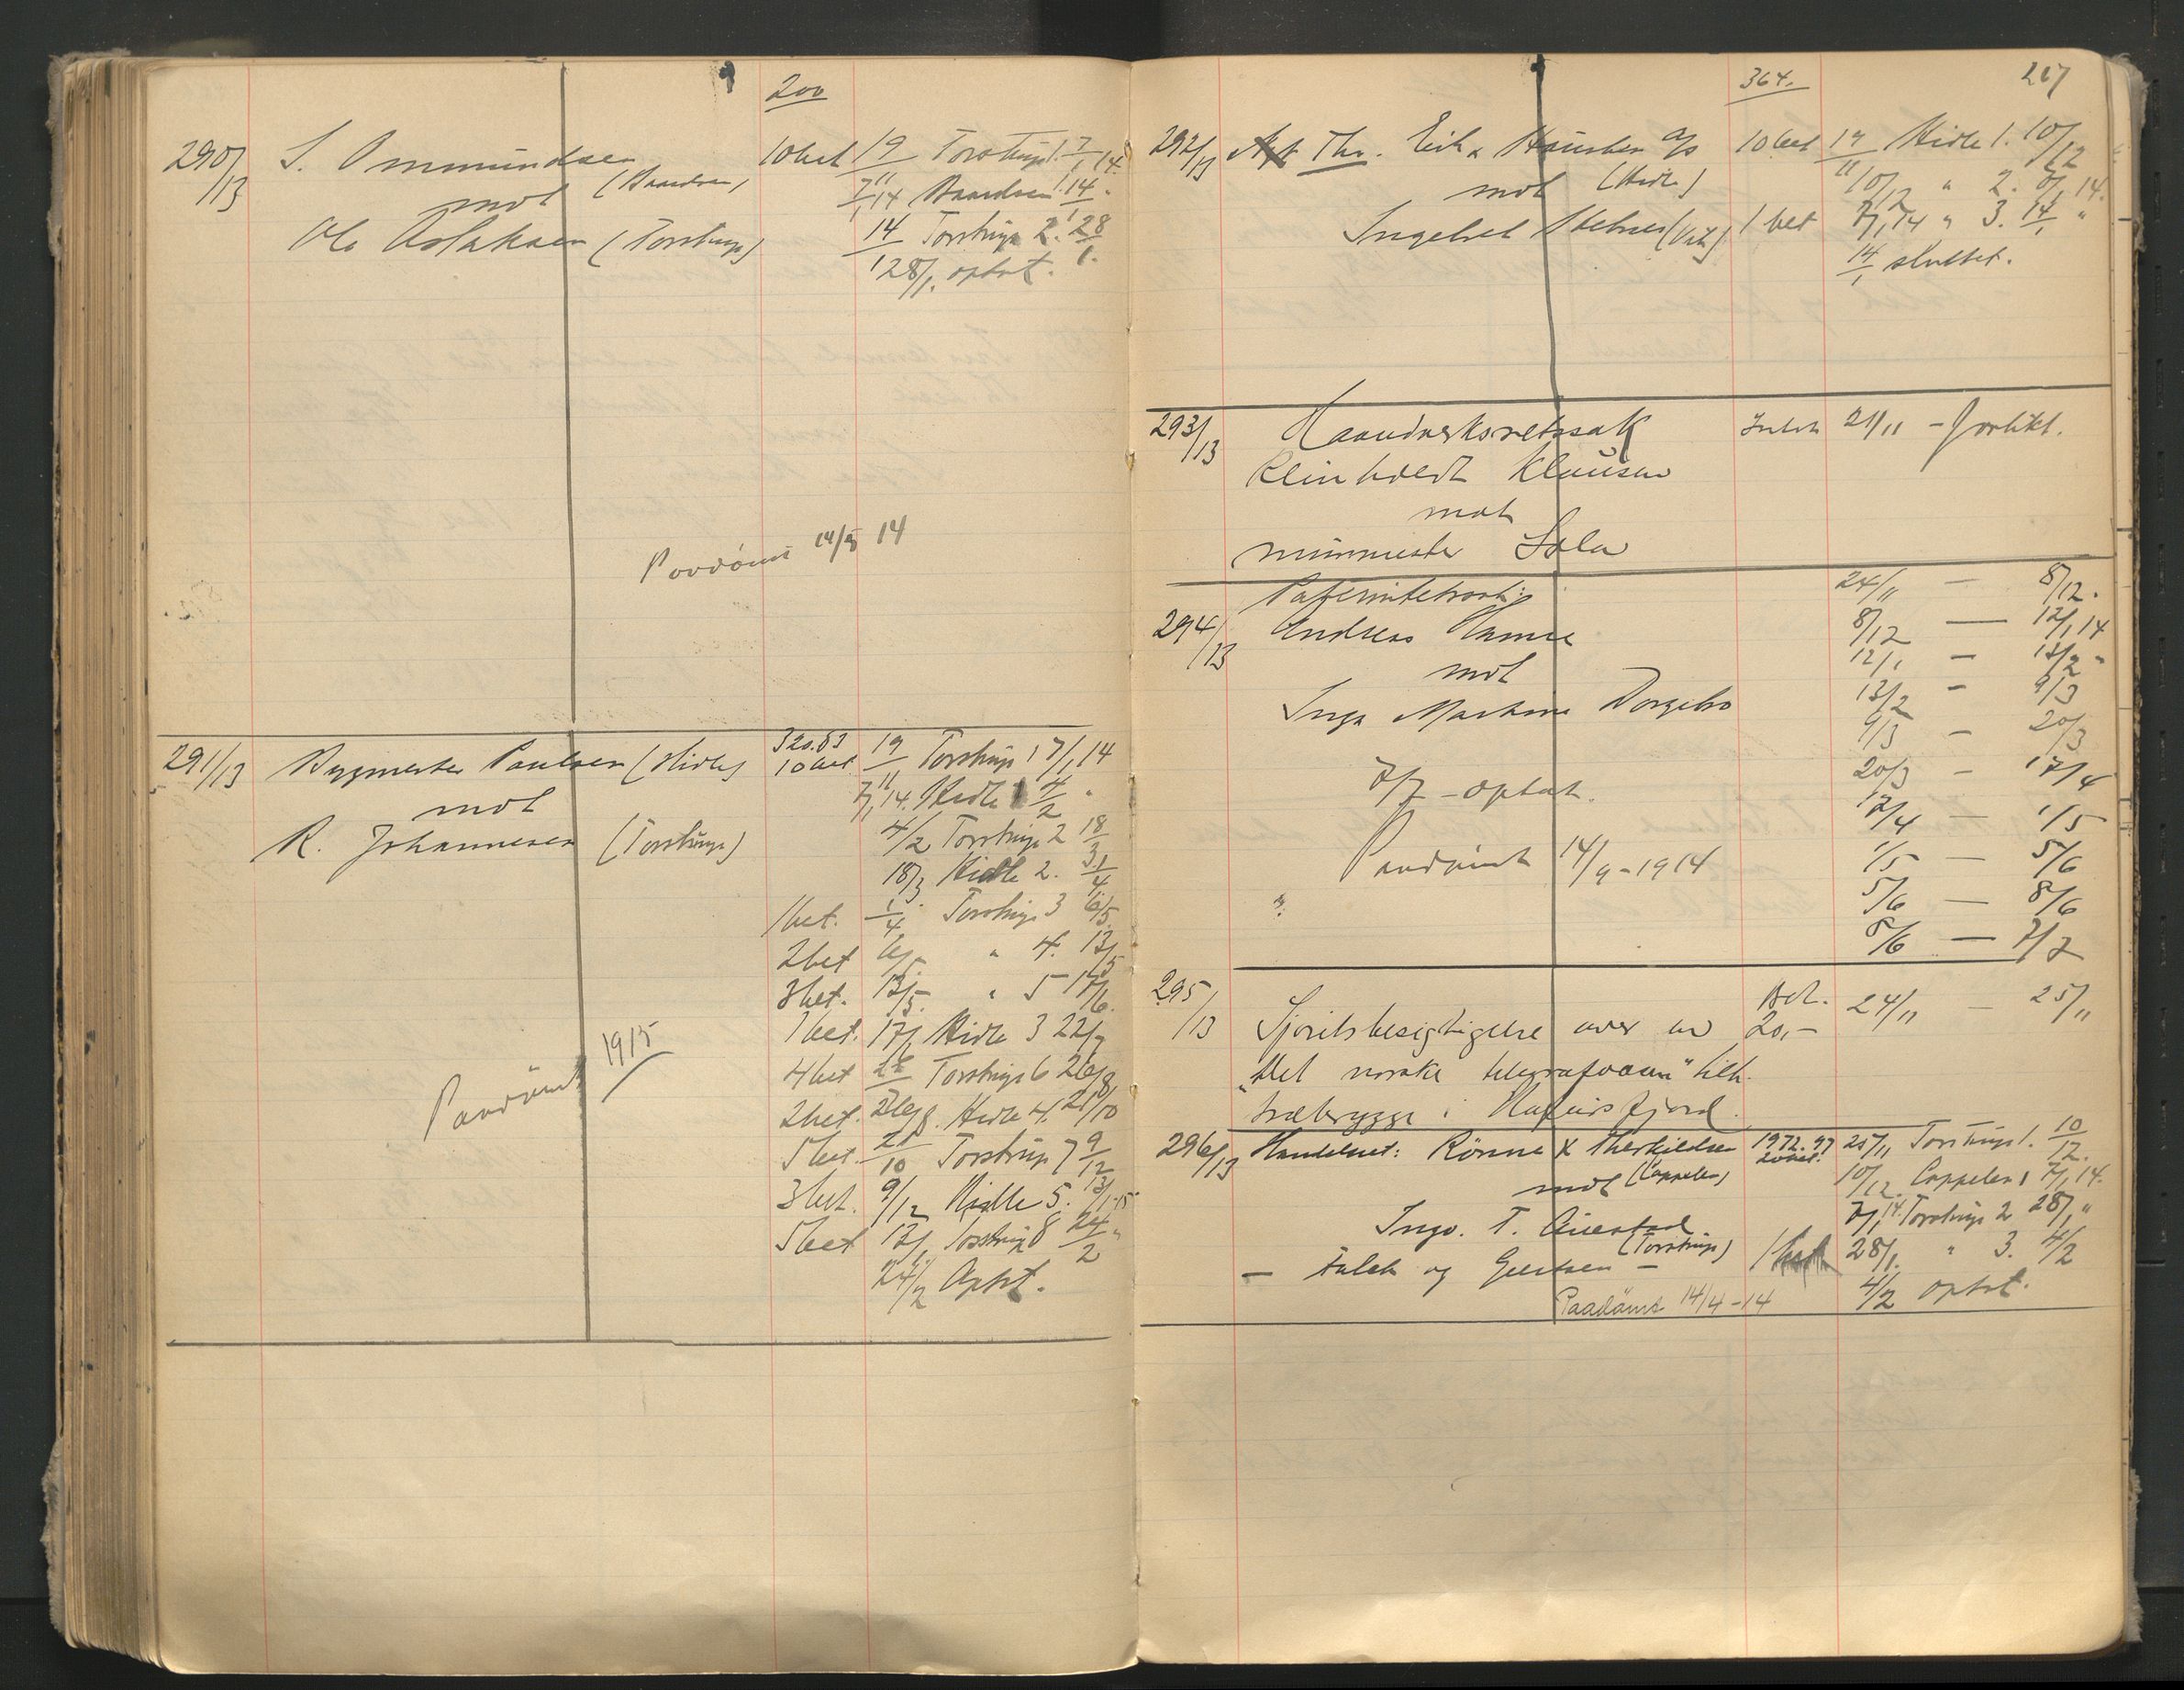 200
290/13 S. Ommundsen 10 bet 19/11 Torstrup 1. 7/1 14.
mot (Baardsen) 7/1 14 Baardsen 1. 14/1 "
Ole Aslaksen (Torstrup) 14/1 Torstrup 2. 28/1.
28/1. optat.
Paadömt 14/ 14
291/13 Bygmester Paulsen (Hidle) 320.83 10 bet 19/11 Torstrup 1 7/1 14
mot 7/1 14. Hidle 1 4/2 "
R. Johannesen (Torstrup) 4/2 Torstrup 2 18/3
18/3 Hidle 2. 1/4
1 bet. 1/4 Torstrup 3 6/5.
2 bet 6/5 " 4. 13/5
3 bet. 13/5. " 5 17/6.
1 bet. 17/6 Hidle 3 22/7
4 bet 22/7 Torstrup 6 26/8
2 bet. 26/8. Hidle 4. 21/10
5 bet. 21/10 Torstrup 7 9/12
3 bet. 9/12 Hidle 5. 13/1-15
5 bet 13/1 Torstrup 8 24/2 "
24/2 Optat.
Paadömt 1915
364. 217
292/13 Thr. Eik & Hausken a/s 10 bet 19/11 Hidle 1. 10/12
mot (Hidle) 10/12 " 2. 7/1 14.
Ingebret 1 bet 7/1 14 " 3. 14/1 "
14/1 sluttet.
293/13 Haandverksretssak 21/11 - forlikt.
Reinholdt Klausen
mot
murmester Sola
Paternitetssak: 24/11 — 8/12.
294/13 Andreas Hamre 8/12 — 12/1 14
mot 12/1 — 13/2 "
Inga Martine 13/2 - 9/3
9/3 - 20/3
7/7 - optat. 20/3 - 17/4
17/4 — 1/5
Paadömt 14/9 - 1914 1/5 — 5/6
5/6 — 8/6
8/6 — 7/7
295/13 Bet. 24/11 — 25/11
Sjöretsbesigtigelse over en 20,-
"Det norske telegrafvæsen" tilh.
træbrygge i Hafursfjord.
296/13 Handelsret: Rönne & Therkildsen 1972.97 20 bet. 25/11 Torstrup 1. 10/12
mot (Cappelen) 10/12. Cappelen 1 7/1 14.
Ingv. T. Auestad 7/1 14. Torstrup 2 28/1 "
(Torstrup)
— Falck og Geertsen — 1 bet 28/1. " 3. 4/2
4/2 optat.
Paadömt 14/4 - 14